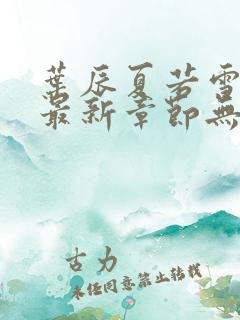 葉辰夏若雪
最新章節無
古力
未经同意禁止转载